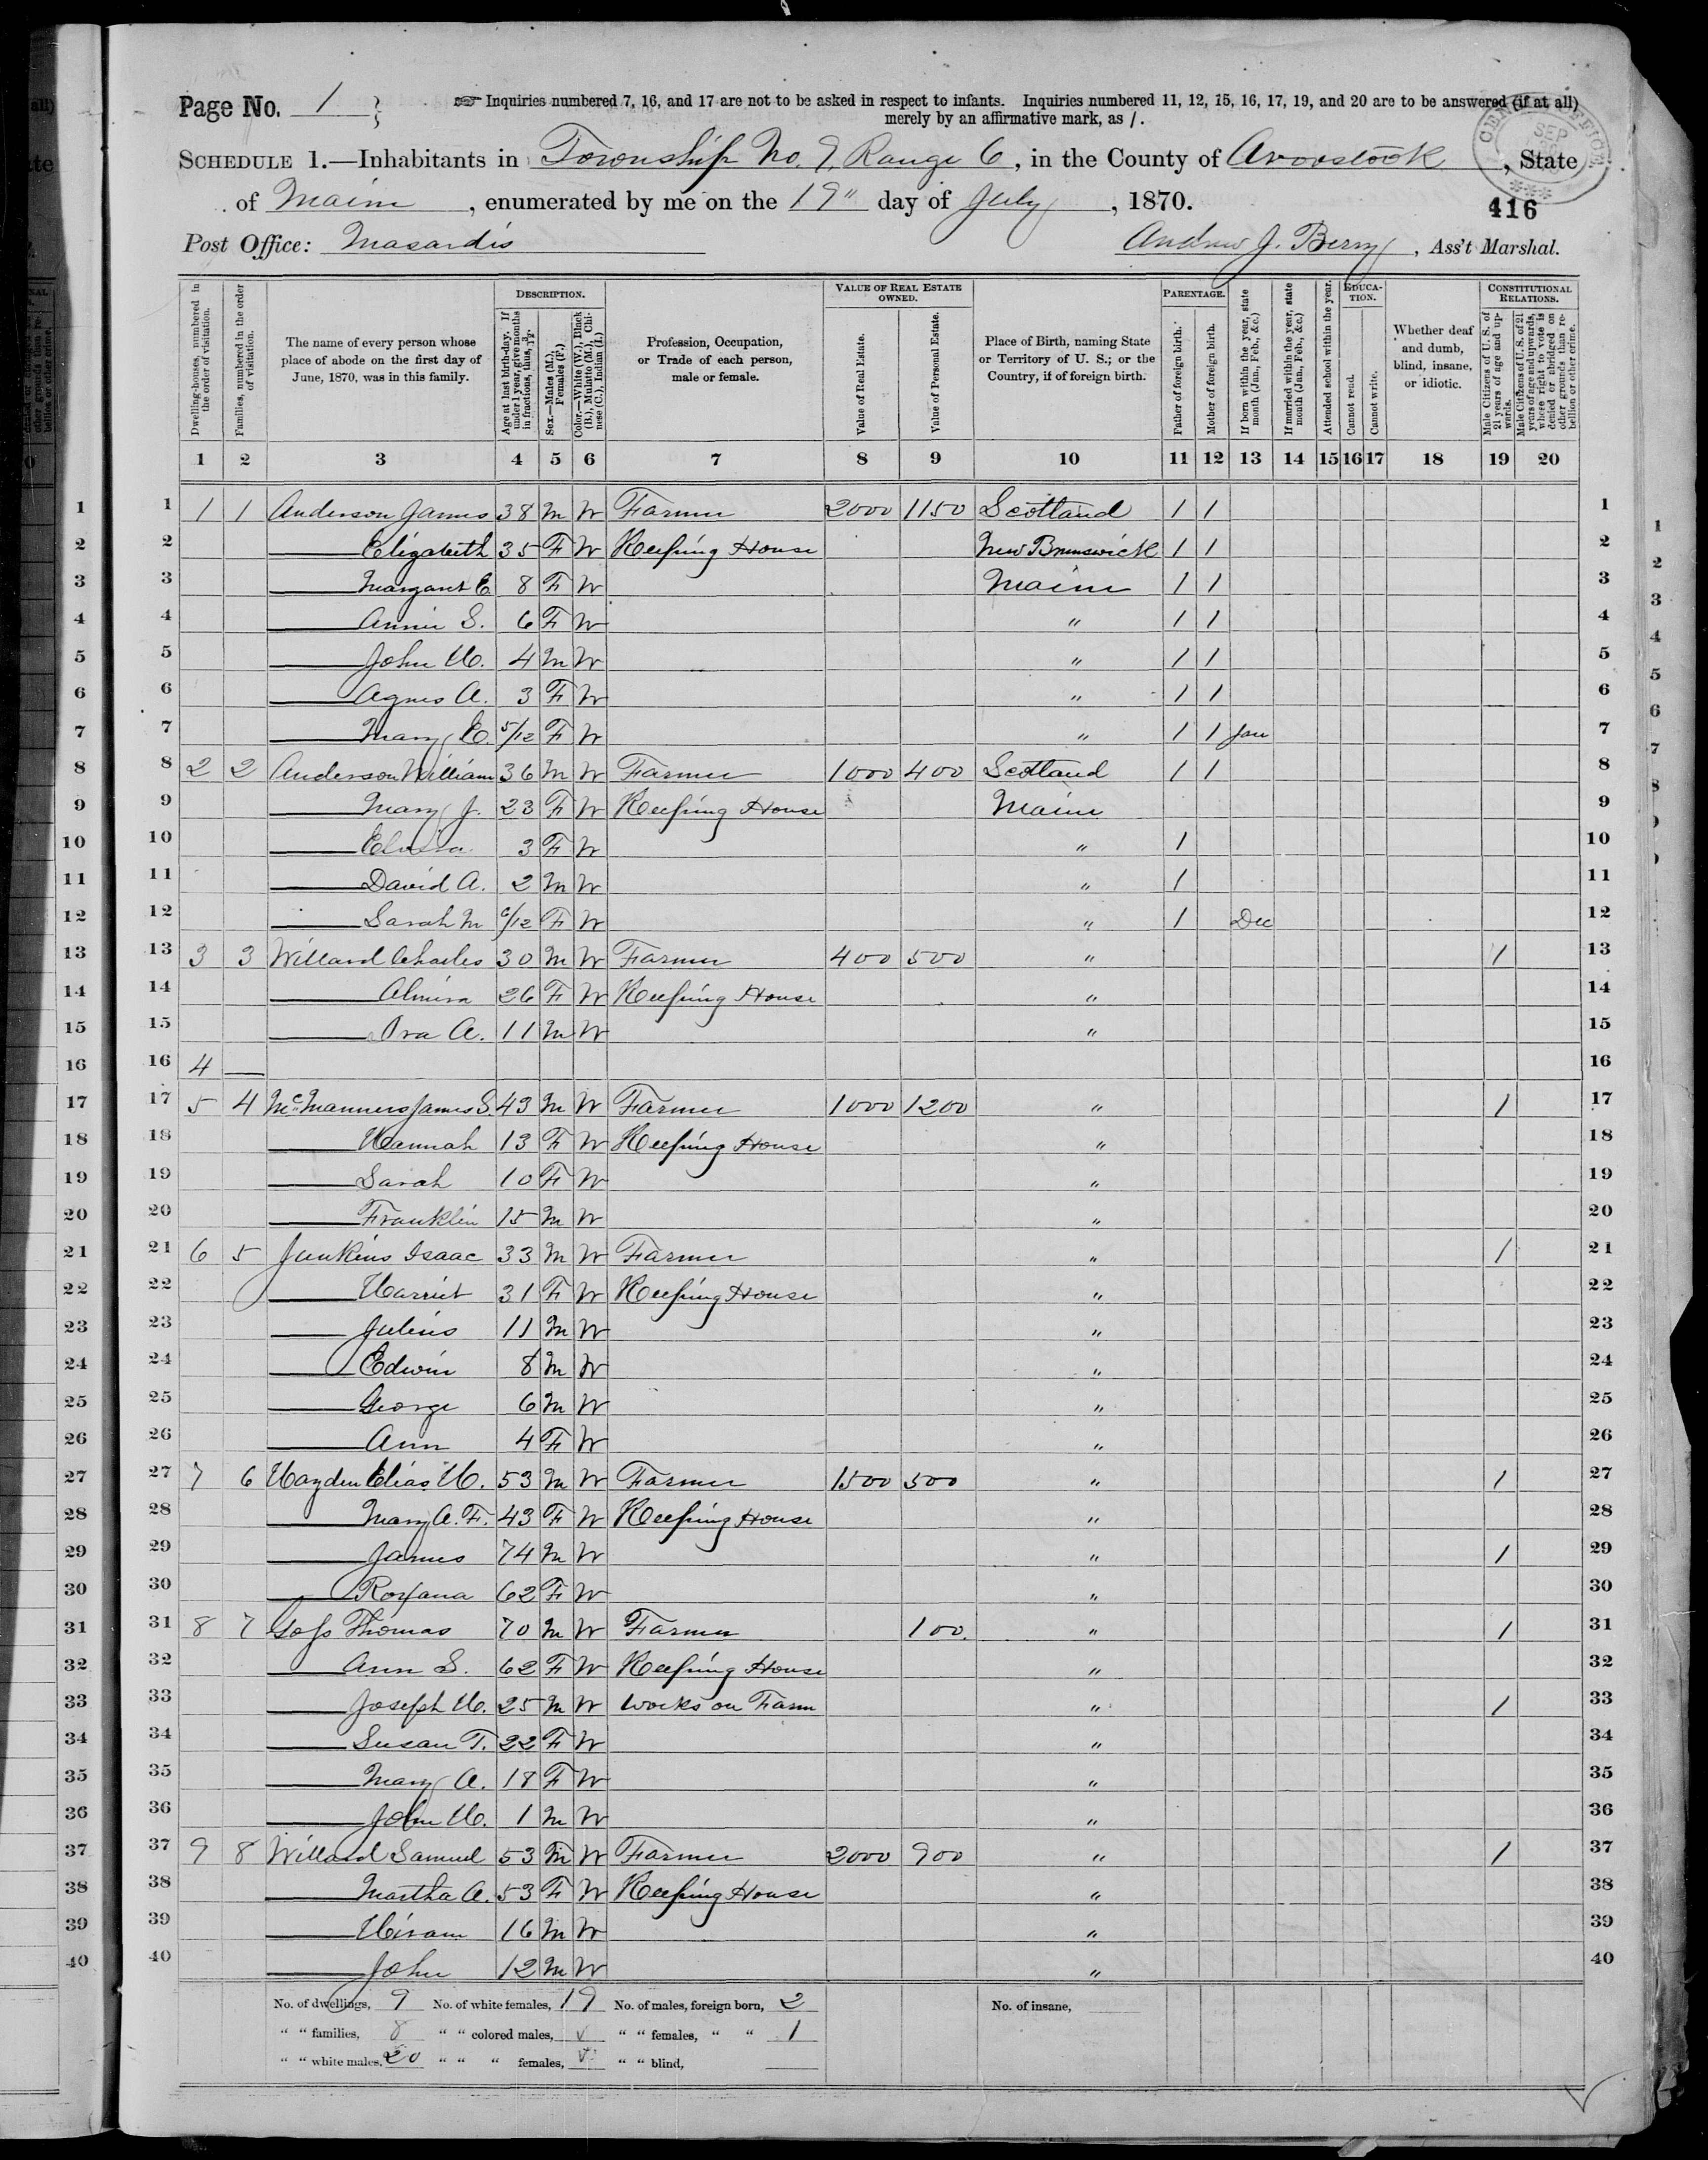 Page No. 1
Inquiries numbered 7, 16, and 17 are not to be asked in respect to infants. Inquiries numbered 11, 12, 15, 16, 17, 19, and 20 are to be answered (if at all)
merely by an affirmative mark, as /.
SCHEDULE 1.—Inhabitants in Township No. 9, Range 6, in the County of Aroostook, State
of Maine, enumerated by me on the 19" day of July, 1870.
416
Post Office: Masardis Andrew J. Berry, Ass't Marshal.
DESCRIPTION. VALUE OF REAL ESTATE OWNED. PARENTAGE. EDUCATION. CONSTITUTIONAL RELATIONS.
Dwelling-houses, numbered in the order of visitation.
Families, numbered in the order of visitation.
The name of every person whose place of abode on the first day of June, 1870, was in this family.
Age at last birth-day. If under 1 year, give months in fractions, thus, 3/12.
Sex.—Males (M.), Females (F.)
Color.—White (W.), Black (B.), Mulatto (M.), Chinese (C.), Indian (I.)
Profession, Occupation, or Trade of each person, male or female.
Value of Real Estate.
Value of Personal Estate.
Place of Birth, naming State or Territory of U. S.; or the Country, if of foreign birth.
Father of foreign birth.
Mother of foreign birth.
If born within the year, state month (Jan., Feb., &c.)
If married within the year, state month (Jan., Feb., &c.)
Attended school within the year.
Cannot read.
Cannot write.
Whether deaf and dumb, blind, insane, or idiotic.
Male Citizens of U. S. of 21 years of age and upwards.
Male Citizens of U. S. of 21 years of age and upwards, where right to vote is denied or abridged on other grounds than rebellion or other crime.
1 2 3 4 5 6 7 8 9 10 11 12 13 14 15 16 17 18 19 20
1 1 1 Anderson James 38 M W Farmer 2000 1150 Scotland 1 1 1
2 Elizabeth 35 F W Keeping House New Brunswick 1 1 2
3 Margaret E. 8 F W Maine 1 1 3
4 Annie S. 6 F W " 1 1 4
5 John H. 4 M W " 1 1 5
6 Agnes A. 3 F W " 1 1 6
7 Mary E. 5/12 F W " 1 1 Jan 7
8 2 2 Anderson William 36 M W Farmer 1000 400 Scotland 1 1 8
9 Mary J. 23 F W Keeping House Maine 9
10 3 F W " 1 10
11 David A. 2 M W " 1 11
12 Sarah M 6/12 F W " 1 Dec 12
13 3 3 Willard Charles 30 M W Farmer 400 500 " 1 13
14 Almira 26 F W Keeping House " 14
15 Ira A. 11 M W " 15
16 4 — 16
17 5 4 McManners James S. 43 M W Farmer 1000 1200 " 1 17
18 Hannah 13 F W Keeping House " 18
19 Sarah 10 F W " 19
20 Franklin 15 M W " 20
21 6 5 Junkins Isaac 33 M W Farmer " 1 21
22 Harriet 31 F W Keeping House " 22
23 Julius 11 M W " 23
24 Edwin 8 M W " 24
25 George 6 M W " 25
26 Ann 4 F W " 26
27 7 6 Hayden Elias H. 53 M W Farmer 1500 500 " 1 27
28 Mary A. F. 43 F W Keeping House " 28
29 James 74 M W " 1 29
30 Roxana 62 F W " 30
31 8 7 Goss Thomas 70 M W Farmer 100 " 1 31
32 Ann S. 62 F W Keeping House " 32
33 Joseph H. 25 M W Works on Farm " 1 33
34 Susan T. 22 F W " 34
35 Mary A. 18 F W " 35
36 John H. 1 M W " 36
37 9 8 Willard Samuel 53 M W Farmer 2000 900 " 1 37
38 Martha A. 53 F W Keeping House " 38
39 Hiram 16 M W " 39
40 John 12 M W " 40
No. of dwellings, 9 No. of white females, 19 No. of males, foreign born, 2 No. of insane,
" " families, 8 " " colored males, " " females, " " 1
" " white males, 20 " " " females, " " blind,